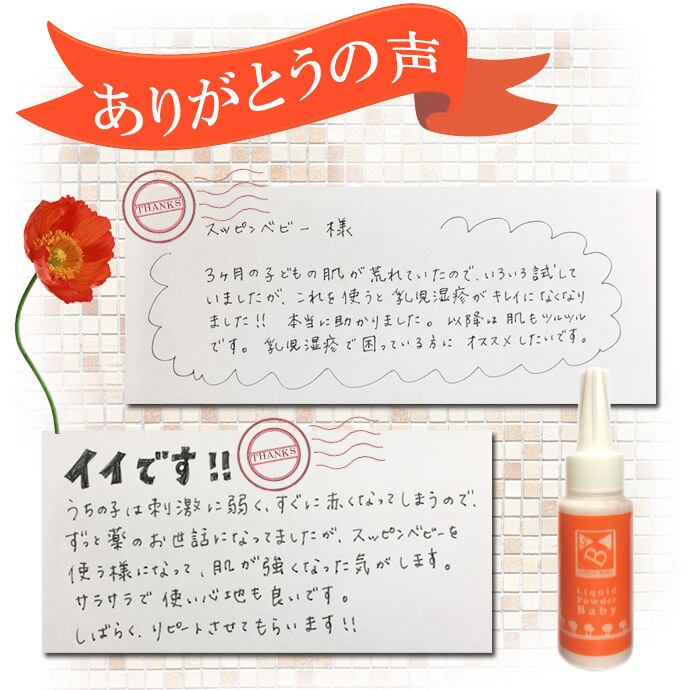 ありがとうの声
THANKS
スッピンベビー 様
3ヶ月の子どもの肌が荒れていたので、いろいろ試して
いましたが、これを使うと乳児湿疹がキレイになくなり
ました!! 本当に助かりました。以降は肌もツルツル
です。乳児湿疹で困っている方にオススメしたいです。
イイです!!
THANKS
うちの子は刺激に弱く、すぐに赤くなってしまうので、
ずっと薬のお世話になってましたが、スッピンベビーを
使う様になって、肌が強くなった気がします。
サラサラで使い心地も良いです。
しばらく、リピートさせてもらいます!!
B
Liquid
Powder
Baby